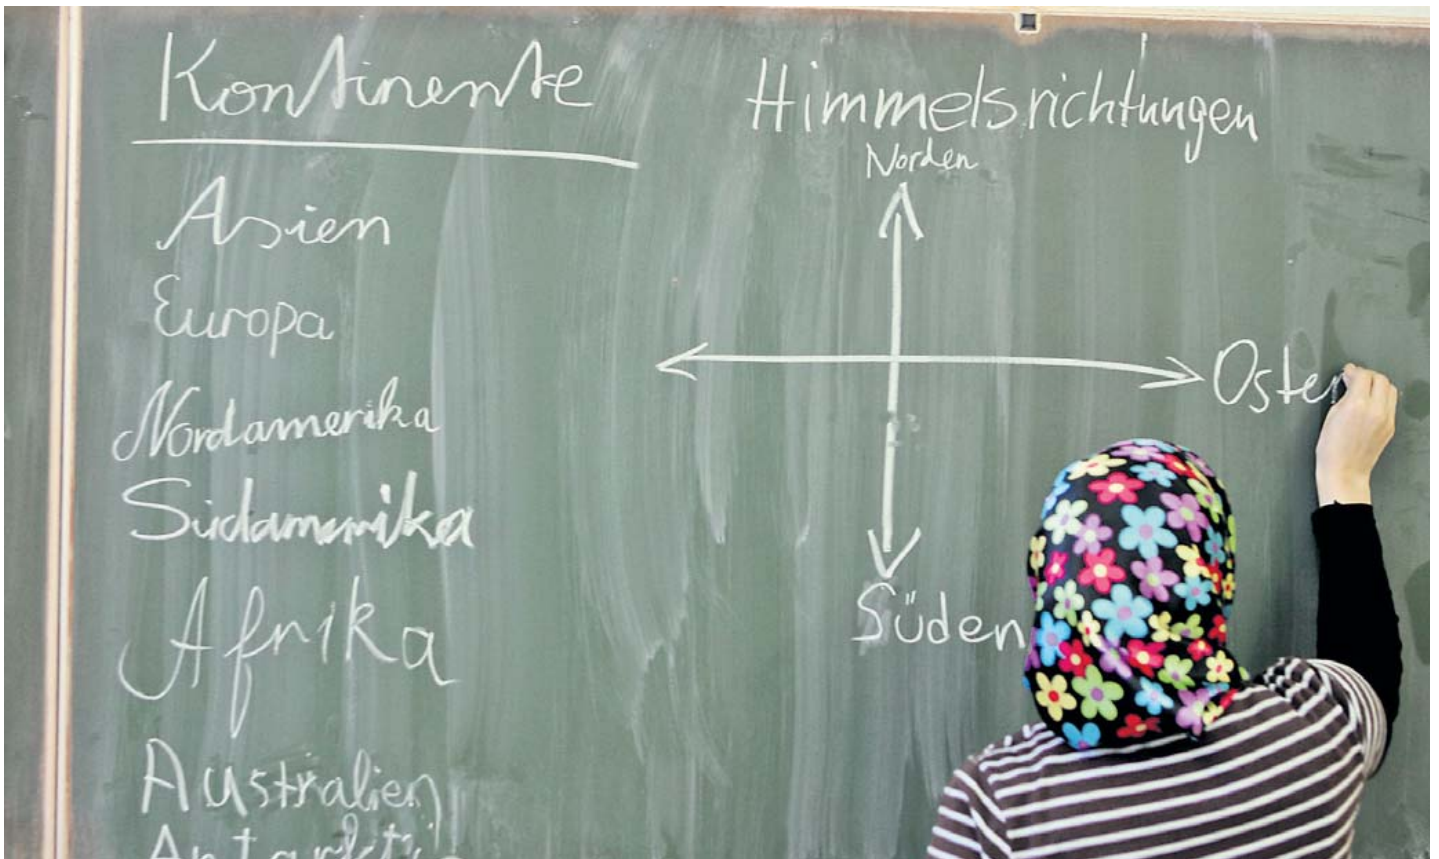 Kontinente
Asien
Europa
Nordamerika
Südamerika
Afrika
Australien
Himmelsrichtungen
Norden
Osten
Süden